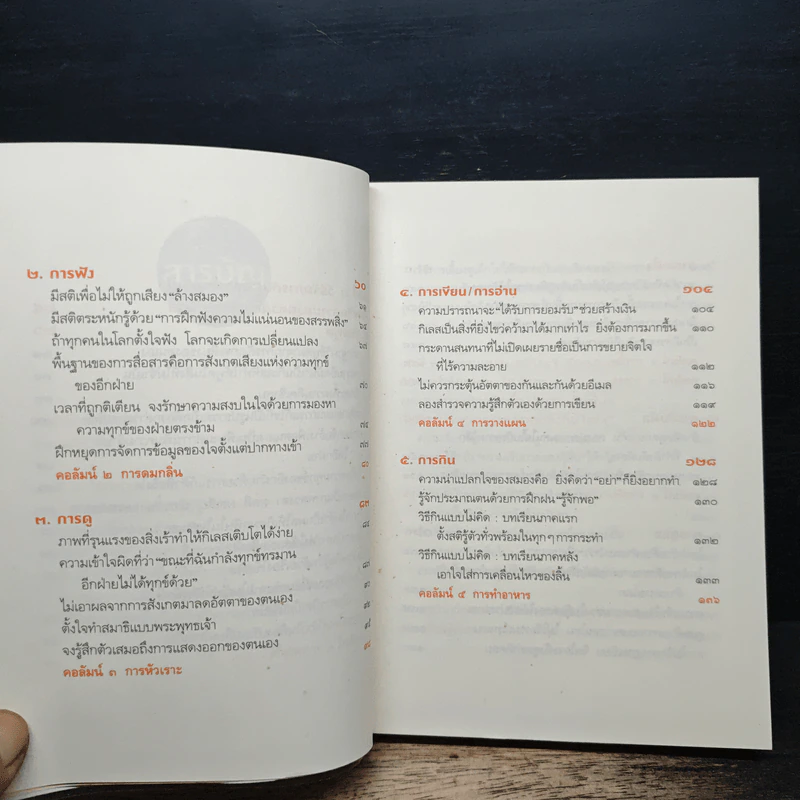 ๒. การฟัง ๖๐
มีสติเพื่อไม่ให้ถูกเสียง "ล้างสมอง" ๖๑
มีสติตระหนักรู้ด้วย "การฝึกฟังความไม่แน่นอนของสรรพสิ่ง" ๖๔
ถ้าทุกคนในโลกตั้งใจฟัง โลกจะเกิดการเปลี่ยนแปลง ๖๗
พื้นฐานของการสื่อสารคือการสังเกตเสียงแห่งความทุกข์
ของอีกฝ่าย ๗๐
เวลาที่ถูกติเตียน จงรักษาความสงบในใจด้วยการมองหา
ความทุกข์ของฝ่ายตรงข้าม
ฝึกหยุดการจัดการข้อมูลของใจตั้งแต่ปากทางเข้า ๗๗
คอลัมน์ ๒ การดมกลิ่น ๘๐
๓. การดู
ภาพที่รุนแรงของสิ่งเร้าทำให้กิเลสเติบโตได้ง่าย
ความเข้าใจผิดที่ว่า "ขณะที่ฉันกำลังทุกข์ทรมาน
อีกฝ่ายไม่ได้ทุกข์ด้วย"
ไม่เอาผลจากการสังเกตมาลดอัตตาของตนเอง
ตั้งใจทำสมาธิแบบพระพุทธเจ้า
จงรู้สึกตัวเสมอถึงการแสดงออกของตนเอง
คอลัมน์ ๓ การหัวเราะ
๔. การเขียน/การอ่าน ๑๐๔
ความปรารถนาจะ "ได้รับการยอมรับ" ช่วยสร้างเงิน ๑๐๔
กิเลสเป็นสิ่งที่ยิ่งไขว่คว้ามาได้มากเท่าไร ยิ่งต้องการมากขึ้น ๑๑๐
กระดานสนทนาที่ไม่เปิดเผยรายชื่อเป็นการขยายจิตใจ
ที่ไร้ความละอาย ๑๑๒
ไม่ควรกระตุ้นอัตตาของกันและกันด้วยอีเมล ๑๑๖
ลองสำรวจความรู้สึกตัวเองด้วยการเขียน ๑๑๙
คอลัมน์ ๔ การวางแผน ๑๒๒
๕. การกิน ๑๒๘
ความน่าแปลกใจของสมองคือ ยิ่งคิดว่า "อย่า" ก็ยิ่งอยากทำ ๑๒๘
รู้จักประมาณตนด้วยการฝึกฝน "รู้จักพอ" ๑๓๐
วิธีกินแบบไม่คิด : บทเรียนภาคแรก
ตั้งสติรู้ตัวทั่วพร้อมในทุกๆ การกระทำ ๑๓๒
วิธีกินแบบไม่คิด : บทเรียนภาคหลัง
เอาใจใส่การเคลื่อนไหวของลิ้น ๑๓๓
คอลัมน์ ๕ การทำอาหาร ๑๓๖